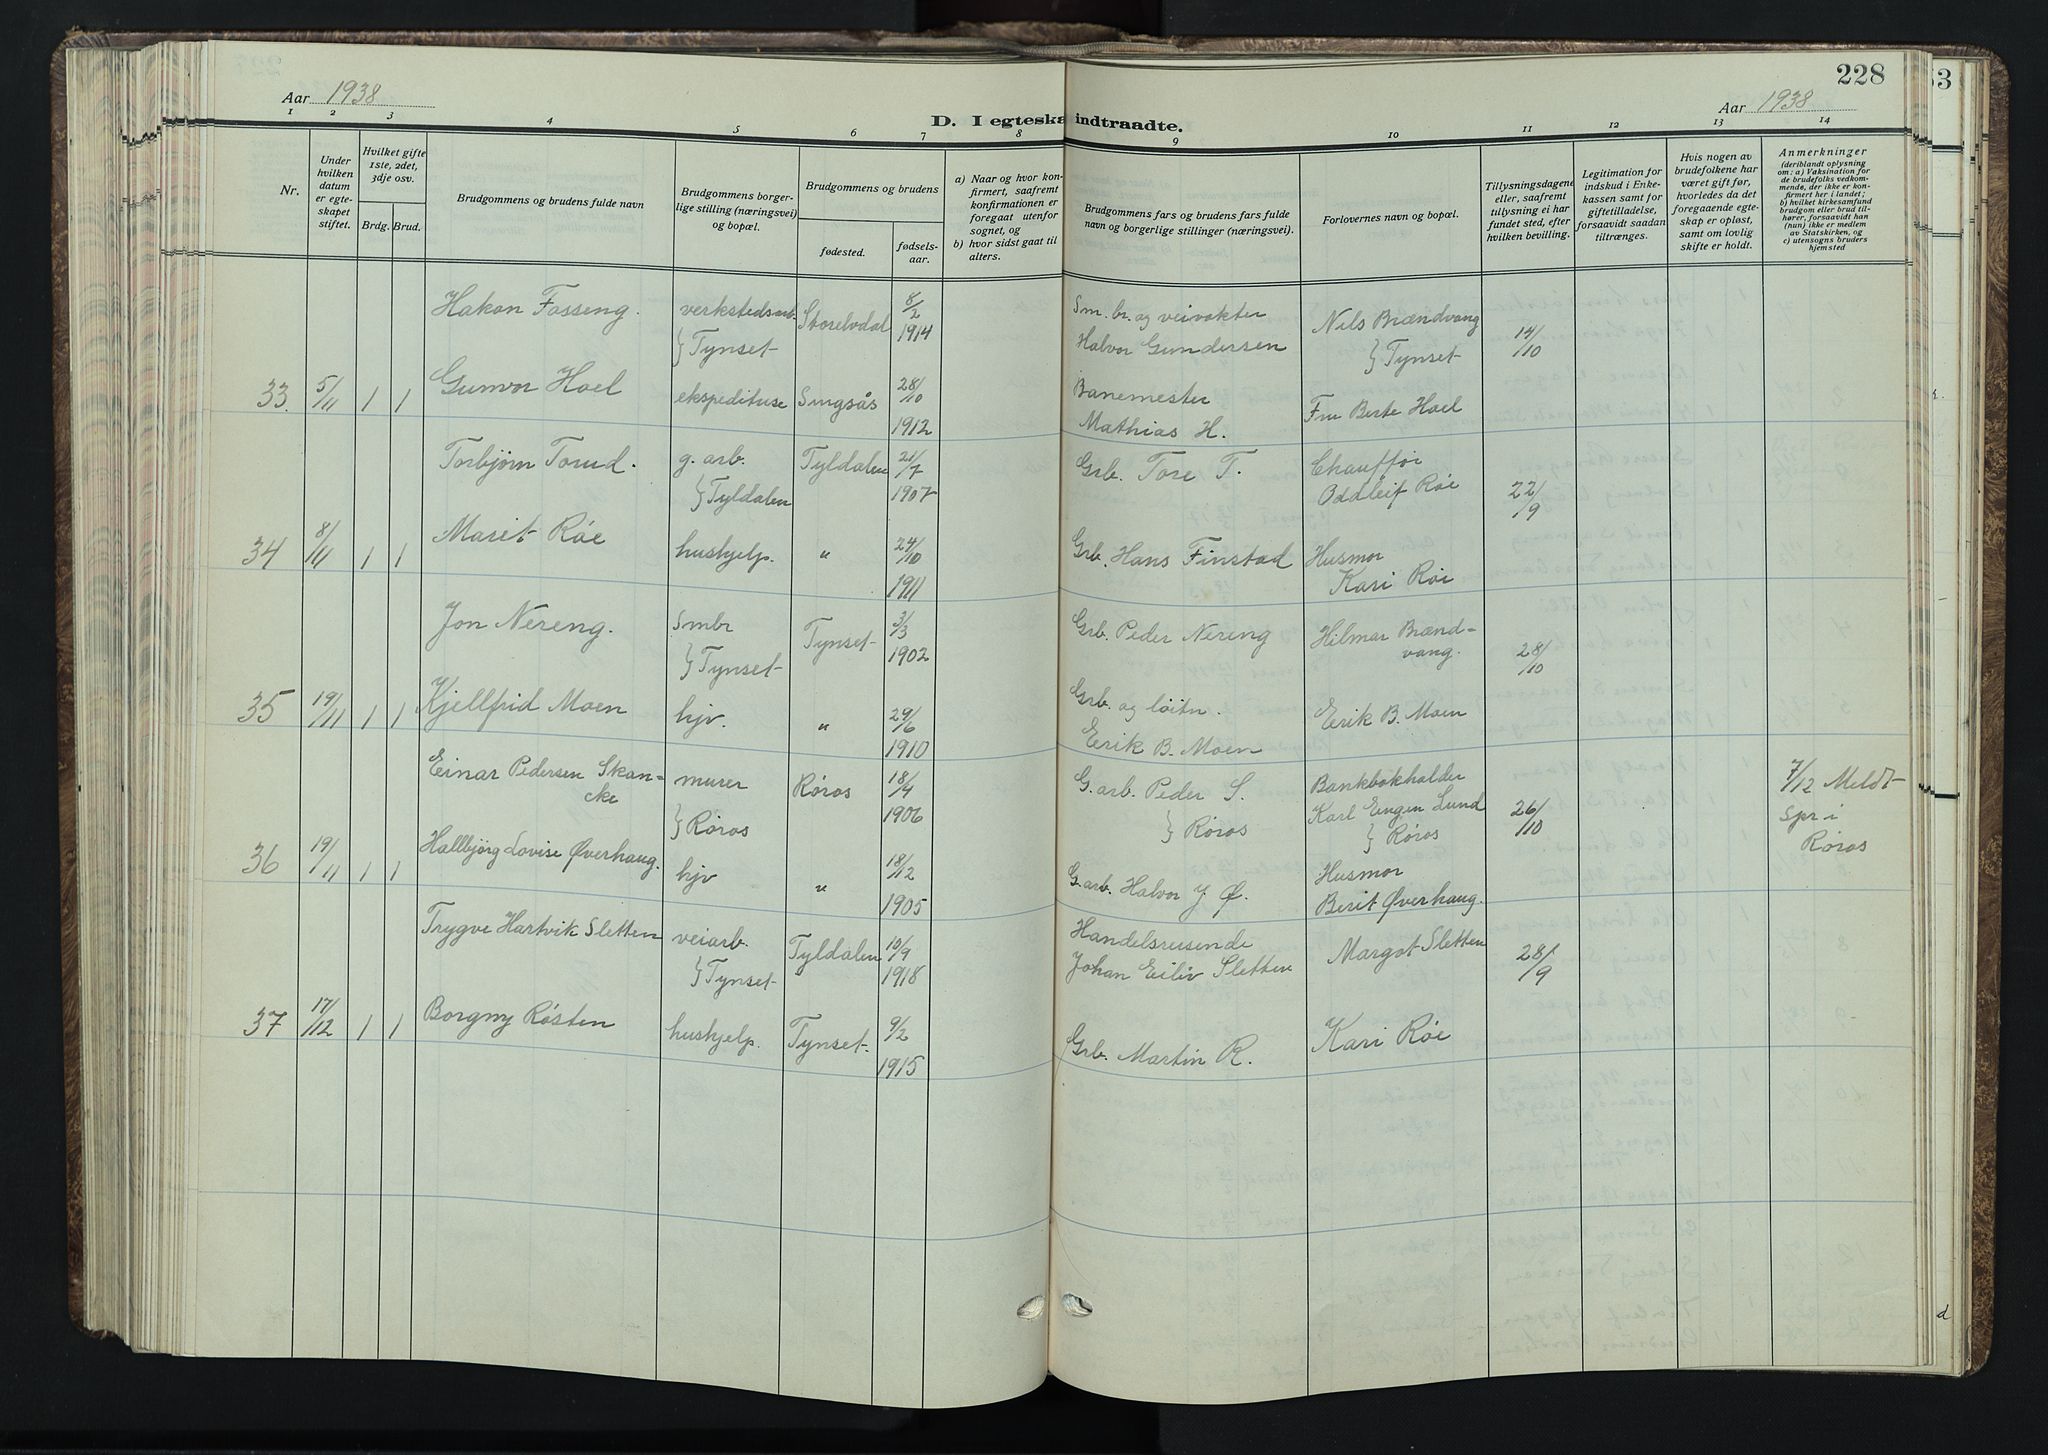 228
53
Aar 1938
Aar 1938
D. I egteska indtraadte.
1 2 3 4 5 6 7 8 9 10 11 12 13 14
Nr.
Under hvilken datum er egteskapet stiftet.
Hvilket gifte 1ste, 2det, 3dje osv.
Brdg. Brud.
Brudgommens og brudens fulde navn
Brudgommens borgerlige stilling (næringsvei) og bopæl.
Brudgommens og brudens
fødested.
fødselsaar.
a) Naar og hvor konfirmert, saafremt konfirmationen er foregaat utenfor sognet, og
b) hvor sidst gaat til alters.
Brudgommens fars og brudens fars fulde navn og borgerlige stillinger (næringsvei).
Forlovernes navn og bopæl.
Tillysningsdagene eller, saafremt tillysning ei har fundet sted, efter hvilken bevilling.
Legitimation for indskud i Enkekassen samt for giftetilladelse, forsaavidt saadan tiltrænges.
Hvis nogen av brudefolkene har været gift før, hvorledes da det foregaaende egteskap er opløst, samt om lovlig skifte er holdt.
Anmerkninger
(deriblandt oplysning om: a) Vaksination for de brudefolks vedkommende, der ikke er konfirmert her i landet;
b) hvilket kirkesamfund brudgom eller brud tilhører, forsaavidt han (hun) ikke er medlem av Statskirken, og
c) utensogns bruders hjemsted
Hakon Fosseng. verkstedsarb. } Tynset Storelvdal 8/2 1914 Sm.br. og veivokter Halvor Gundersen Nils Brændvang } Tynset 14/10
33. 5/11 1 1 Gunvor Hoel ekspeditrise Singsås 28/10 1912 Banemester Mathias H. Fru Berte Hoel
Torbjørn Torud. g. arb. } Tyldalen Tyldalen 21/7 1907 Grb. Tore T. Chauffør Oddleif Røe 22/9
34 8/11 1 1 Marit Røe hushjelp. " 24/10 1911 Grb. Hans Finstad Husmor Kari Røe
Jon Nereng. Smbr } Tynset Tynset 3/3 1902 Grb. Peder Nereng Hilmar Brændvang. 28/10
35 19/11 1 1 Kjellfrid Moen hjv. " 29/6 1910 Grb. og løitn. Eerik B. Moen Eerik B. Moen
Einar Pedersen Skancke murer } Røros Røros 18/4 1906 G. arb. Peder S. } Røros Bankbokholder Karl Eugen Lund } Røros 26/10 7/12 Meldt Spr i Røros
36 19/11 1 1 Hallbjørg Lovise Øverhaug. hjv " 18/12 1905 G.arb. Halvor J Ø. Husmor Berit Øverhaug.
Trygve Hartvik Sletten veiarb. } Tynset Tyldalen 10/9 1918 Handelsreisende Johan Eiliv Sletten Margot Sletten 28/9
37 17/12 1 1 Borgny Røsten hushjelp. Tynset. 9/2 1915 Grb. Martin R. Kari Røe
d